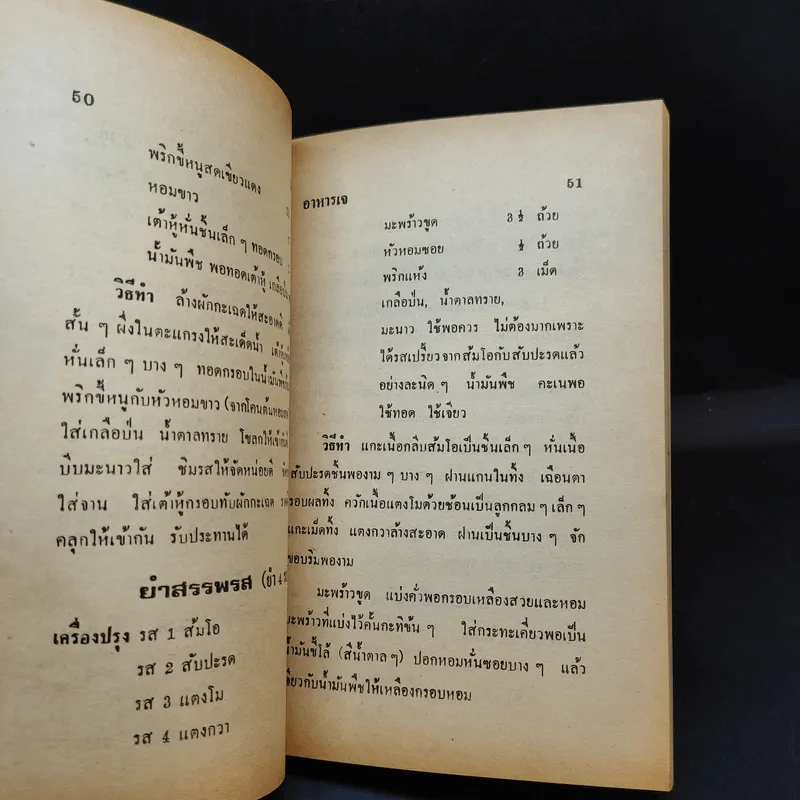 50
พริกขี้หนูสดเขียวแดง
หอมขาว
เต้าหู้หั่นชิ้นเล็ก ๆ ทอดกรอบ
น้ำมันพืช พอทอดเต้าหู้ เกลือป่น
วิธีทำ ล้างผักกะเฉดให้สะอาดดี
สั้น ๆ ผึ่งในตะแกรงให้สะเด็ดน้ำ
หั่นเล็ก ๆ บาง ๆ ทอดกรอบในน้ำมันพืช
พริกขี้หนูกับหัวหอมขาว (จากโคนต้นหอม
ใส่เกลือป่น น้ำตาลทราย โขลกให้เข้ากัน
บีบมะนาวใส่ ชิมรสให้จัดหน่อยดี
ใส่จาน ใส่เต้าหู้กรอบทับผักกะเฉด
คลุกให้เข้ากัน รับประทานได้
ยำสรรพรส (ยำ 4
เครื่องปรุง รส 1 ส้มโอ
รส 2 สับปะรด
รส 3 แตงโม
รส 4 แตงกวา
อาหารเจ 51
มะพร้าวขูด 3 ½ ถ้วย
หัวหอมซอย ½ ถ้วย
พริกแห้ง 3 เม็ด
เกลือป่น, น้ำตาลทราย,
มะนาว ใช้พอควร ไม่ต้องมากเพราะ
ได้รสเปรี้ยวจากส้มโอกับสับปะรดแล้ว
อย่างละนิด ๆ น้ำมันพืช คะเนพอ
ใช้ทอด ใช้เจียว
วิธีทำ แกะเนื้อกลีบส้มโอเป็นชิ้นเล็ก ๆ หั่นเนื้อ
สับปะรดชิ้นพองาม ๆ บาง ๆ ฝานแกนในทิ้ง เฉือนตา
รอบผลทิ้ง ควักเนื้อแตงโมด้วยช้อนเป็นลูกกลม ๆ เล็ก ๆ
แกะเม็ดทิ้ง แตงกวาล้างสะอาด ฝานเป็นชิ้นบาง ๆ จัก
ขอบริมพองาม
มะพร้าวขูด แบ่งคั่วพอกรอบเหลืองสวยและหอม
มะพร้าวที่แบ่งไว้คั้นกะทิข้น ๆ ใส่กระทะเคี่ยวพอเป็น
น้ำมันขี้โล้ (สีน้ำตาล ๆ) ปอกหอมหั่นซอยบาง ๆ แล้ว
เจียวกับน้ำมันพืชให้เหลืองกรอบหอม